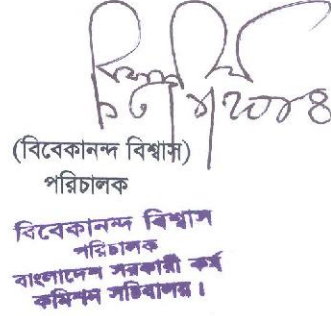 (বিবেকানন্দ বিশ্বাস)
পরিচালক
বিবেকানন্দ বিশ্বাস
পরিচালক
বাংলাদেশ সরকারী কর্ম
কমিশন সচিবালয়।